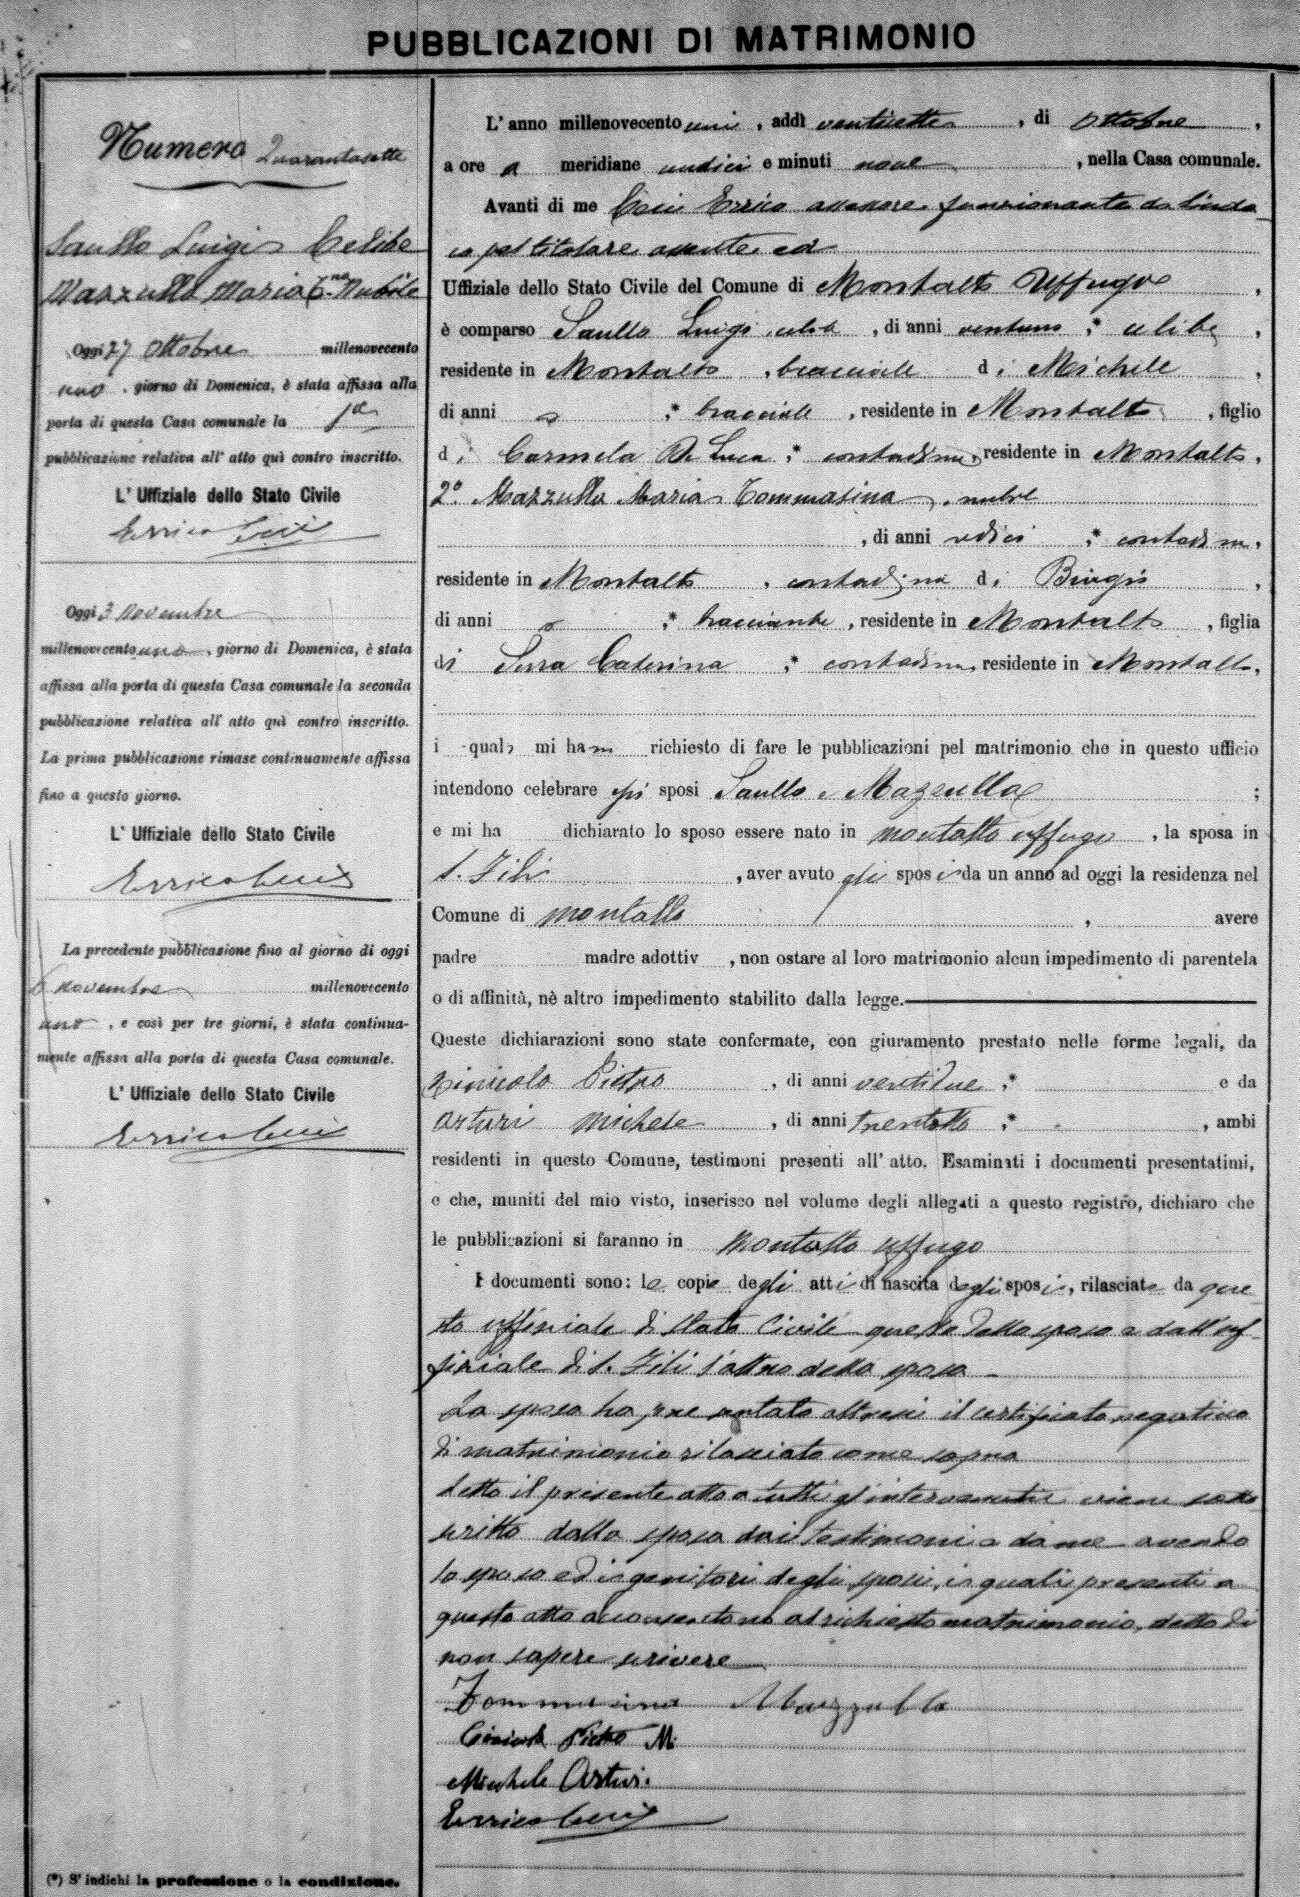 PUBBLICAZIONI DI MATRIMONIO
Numero Quarantasette
Saullo Luigi Celibe
Mazzulla Maria T.na Nubile
Oggi 27 Ottobre millenovecento
uno, giorno di Domenica, è stata affissa alla
porta di questa Casa comunale la 1a
pubblicazione relativa all' atto quì contro inscritto.
L' Uffiziale dello Stato Civile
Errico Ceci
Oggi 3 Novembre
millenovecento uno, giorno di Domenica, è stata
affissa alla porta di questa Casa comunale la seconda
pubblicazione relativa all' atto quì contro inscritto.
La prima pubblicazione rimase continuamente affissa
fino a questo giorno.
L' Uffiziale dello Stato Civile
Errico Ceci
La precedente pubblicazione fino al giorno di oggi
6 novembre millenovecento
uno, e così per tre giorni, è stata continua-
mente affissa alla porta di questa Casa comunale.
L' Uffiziale dello Stato Civile
Errico Ceci
(*) S' indichi la professione o la condizione.
L' anno millenovecento uno, addì ventisette, di Ottobre,
a ore a meridiane undici e minuti nove, nella Casa comunale.
Avanti di me Ceci Errico assessore funzionante da Sinda
co pel titolare assente ed
Uffiziale dello Stato Civile del Comune di Montalto Uffugo,
è comparso Saullo Luigi, di anni ventuno * celibe,
residente in Montalto, bracciale di Michele,
di anni * bracciale, residente in Montalto, figlio
di Carmela De Luca, * contadina, residente in Montalto,
2° Mazzulla Maria Tommasina, nubile
, di anni sedici, * contadina,
residente in Montalto, contadina di Biagio,
di anni , * bracciante, residente in Montalto, figlia
di Serra Caterina, * contadina, residente in Montalto,
i quali mi hann richiesto di fare le pubblicazioni pel matrimonio che in questo ufficio
intendono celebrare essi sposi Saullo e Mazzulla;
e mi ha dichiarato lo sposo essere nato in Montalto Uffugo, la sposa in
S. Fili, aver avuto gli sposi da un anno ad oggi la residenza nel
Comune di Montalto, avere
padre madre adottiv , non ostare al loro matrimonio alcun impedimento di parentela
o di affinità, nè altro impedimento stabilito dalla legge.
Queste dichiarazioni sono state confermate, con giuramento prestato nelle forme legali, da
Pietro, di anni ventidue, * e da
Arturi Michele, di anni trentotto, *, ambi
residenti in questo Comune, testimoni presenti all' atto. Esaminati i documenti presentatimi,
e che, muniti del mio visto, inserisco nel volume degli allegati a questo registro, dichiaro che
le pubblicazioni si faranno in Montalto Uffugo
I documenti sono: le copie degli atti di nascita degli sposi, rilasciate da que
sto uffiziale di Stato Civile quello dello sposo e dall'uf
fiziale di S. Fili l'altro della sposa
La sposa ha presentato altresì il certificato negativo
di matrimonio rilasciato come sopra
Letto il presente atto a tutti gl'intervenuti viene sotto
scritto dalla sposa dai testimoni e da me avendo
lo sposo ed i genitori degli sposi, i quali presenti a
questo atto acconsentono al richiesto matrimonio, detto di
non sapere scrivere
Tommasina Mazzulla
Pietro M.
Michele Arturi.
Errico Ceci